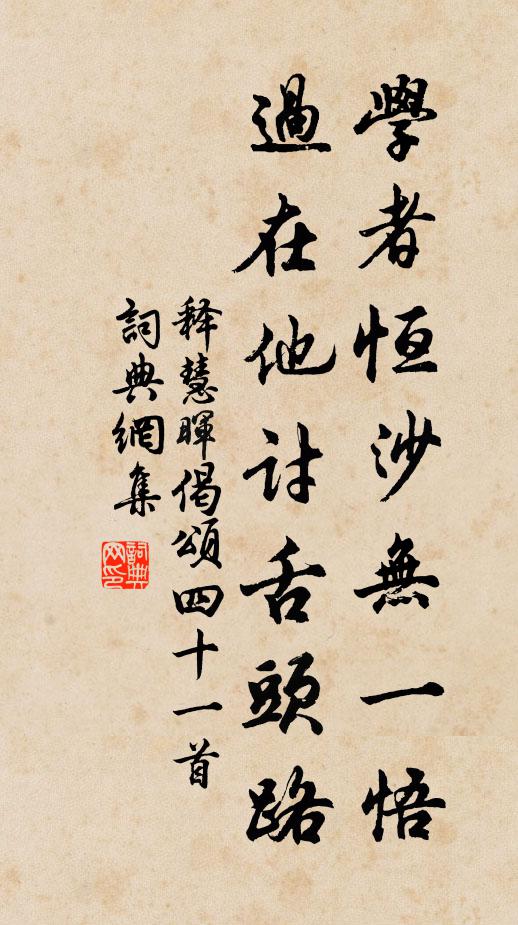 學者恆沙無一悟
過在他討舌頭路
释慧暉偈頌四十一首
詞典網集
詞典网印